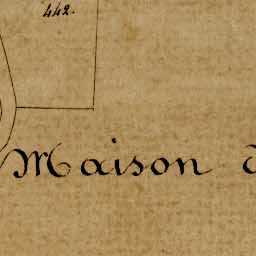 442.
Maison d